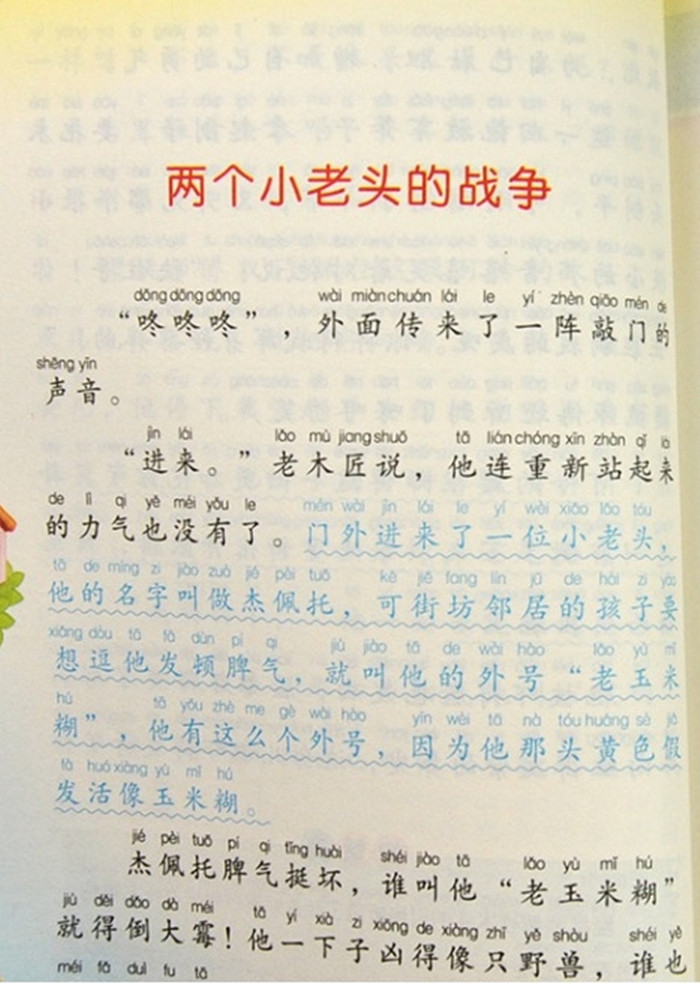 两个小老头的战争
dōng dōng dōng wài miàn chuán lái le yí zhèn qiāo mén de
“咚咚咚”，外面传来了一阵敲门的
shēng yīn
声音。
jìn lái lǎo mù jiang shuō tā lián chóng xīn zhàn qǐ lá
“进来。”老木匠说，他连重新站起来
de lì qi yě méi yǒu le mén wài jìn lái le yí wèi xiǎo lǎo tóu
的力气也没有了。门外进来了一位小老头，
tā de míng zi jiào zuò jié pèi tuō kě jiē fang lín jū de hái zi yào
他的名字叫做杰佩托，可街坊邻居的孩子要
xiǎng dòu tā fā dùn pí qi jiù jiào tā de wài hào lǎo yù mǐ
想逗他发顿脾气，就叫他的外号“老玉米
hú tā yǒu zhè me gè wài hào yīn wèi tā nà tóu huáng sè jiǎ
糊”，他有这么个外号，因为他那头黄色假
fà huó xiàng yù mǐ hú
发活像玉米糊。
jié pèi tuō pí qi tǐng huài shéi jiào tā lǎo yù mǐ hú
杰佩托脾气挺坏，谁叫他“老玉米糊”
jiù děi dǎo dà méi tā yí xià zi xiōng de xiàng zhī yě shòu shéi yě
就得倒大霉！他一下子凶得像只野兽，谁也
méi fǎ duì fu tā